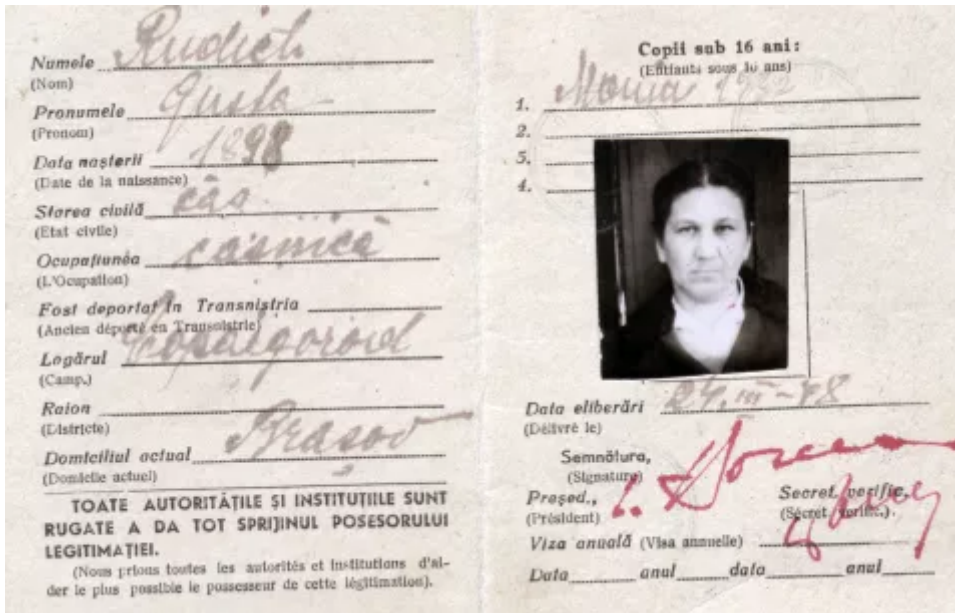 Numele Rudich
(Nom)
Pronumele Gusta
(Prenom)
Data nașterii 1898
(Date de la naissance)
Starea civilă căs
(Etat civile)
Ocupațiunea casnică
(L'Ocupation)
Fost deportat în Transnistria
(Ancien déporté en Transnistrie)
Logărul Copaigorod
(Camp.)
Raion
(Districte)
Domiciliul actual Brașov
(Domicile actuel)
TOATE AUTORITĂȚILE ȘI INSTITUȚIILE SUNT
RUGATE A DA TOT SPRIJINUL POSESORULUI
LEGITIMAȚIEI.
(Nous prions toutes les autorités et institutions d'ai-
der le plus possible le possesseur de cette légitimation).
Copii sub 16 ani:
(Enfants sous 16 ans)
1. 1932
2.
3.
4.
Data eliberări 24.III-48
(Délivré le)
Semnătura,
(Signature)
Președ.,
(Président)
Secret. verific.,
(Sécret. verific.).
Viza anuală (Visa annuelle)
Data anul data anul